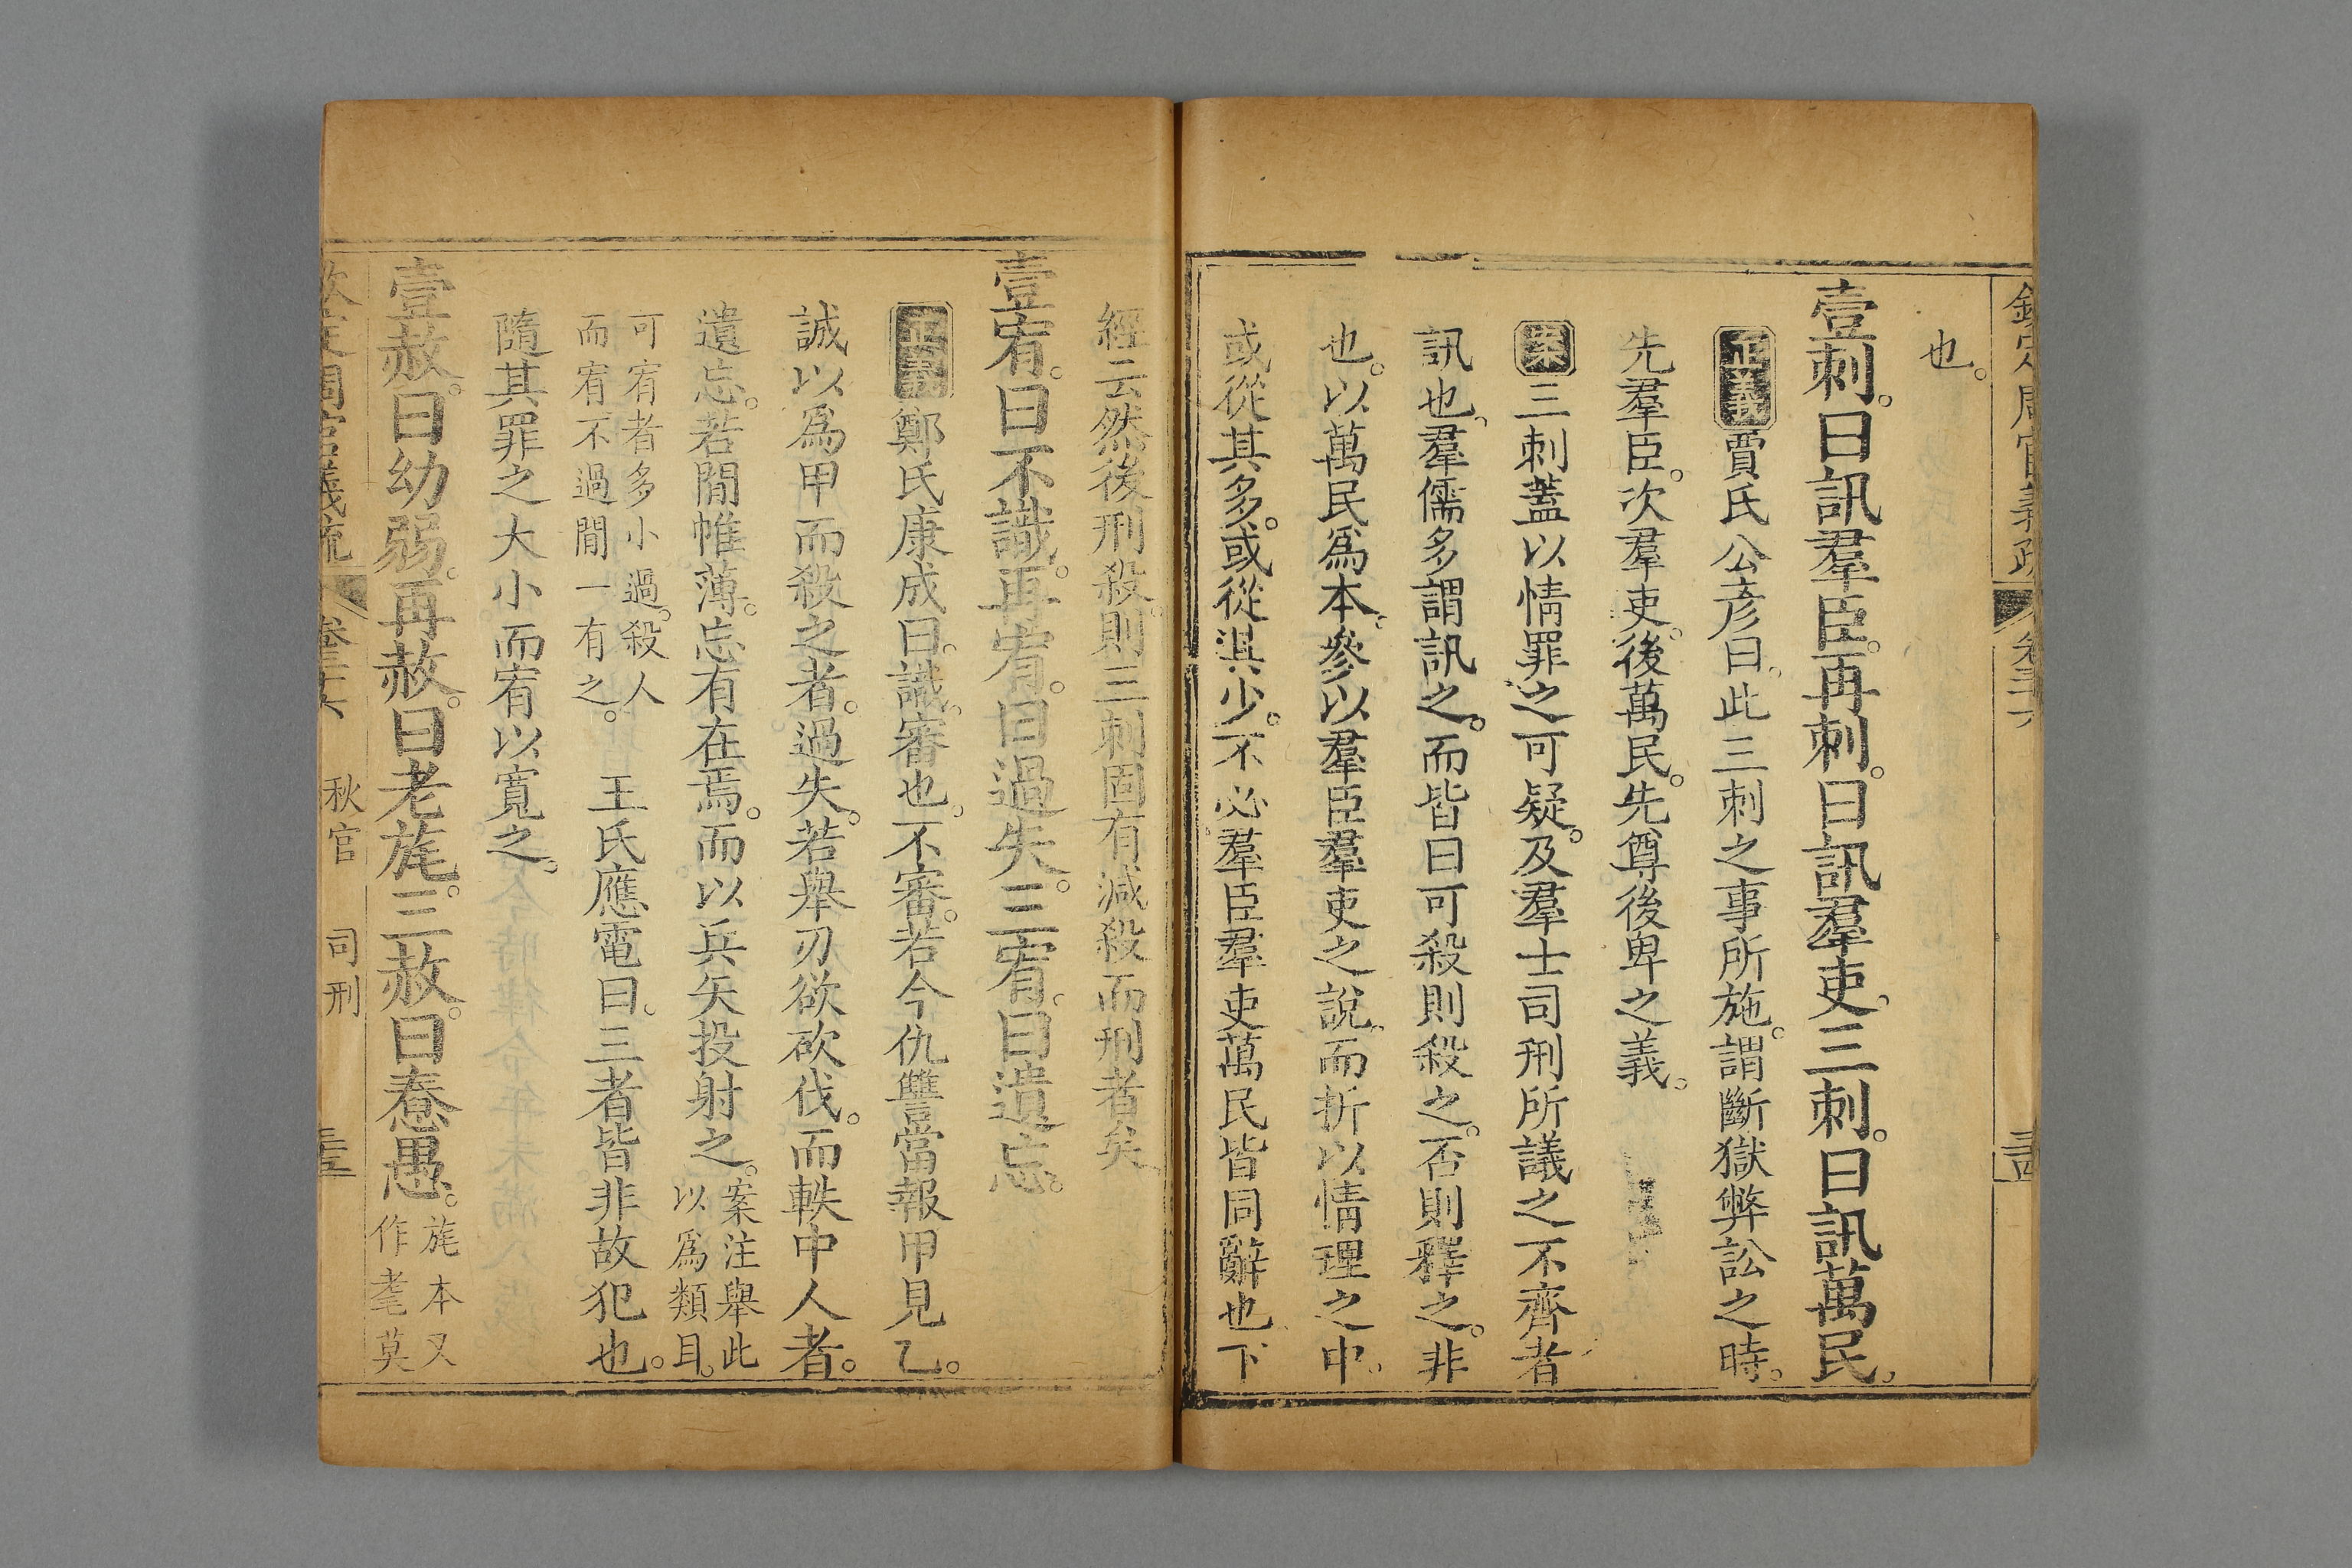 欽定周官義疏 卷三十六
也。
壹刺。曰訊羣臣。再刺。曰訊羣吏。三刺。曰訊萬民。
正義 賈氏公彥曰。此三刺之事所施。謂斷獄弊訟之時。
先羣臣。次羣吏。後萬民。先尊後卑之義。
案 三刺蓋以情罪之可疑。及羣士司刑所議之不齊者
訊也。羣儒多謂訊之。而皆曰可殺則殺之。否則釋之。非
也。以萬民爲本。參以羣臣羣吏之說。而折以情理之中。
或從其多。或從其少。不必羣臣羣吏萬民皆同辭也下
經云然後刑殺。則三刺固有減殺而刑者矣。
壹宥。曰不識。再宥。曰過失。三宥。曰遺忘。
正義 鄭氏康成曰。識。審也。不審。若今仇讐當報甲見乙。
誠以爲甲而殺之者。過失。若舉刃欲砍伐。而軼中人者。
遺忘。若閒帷薄。忘有在焉。而以兵矢投射之。案注舉此
以爲類耳。
可宥者多小過。殺人
而宥不過閒一有之。 王氏應電曰。三者皆非故犯也。
隨其罪之大小而宥以寬之。
壹赦。曰幼弱。再赦。曰老旄。三赦。曰憃愚。旄本又
作耄莫
欽定周官義疏 卷三十六 秋官 司刑